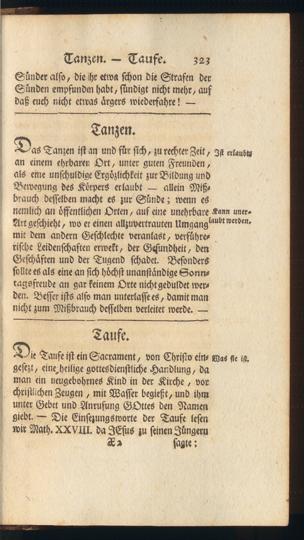 Tanzen. — Taufe. 323
Sünder also, die ihr etwa schon die Strafen der
Sünden empfunden habt, sündigt nicht mehr, auf
daß euch nicht etwas ärgers wiederfahre! —
Tanzen.
Das Tanzen ist an und für sich, zu rechter Zeit, Ist erlaubt;
an einem ehrbaren Ort, unter guten Freunden,
als eine unschuldige Ergözlichkeit zur Bildung und
Bewegung des Körpers erlaubt — allein Miß-
brauch desselben macht es zur Sünde; wenn es
nemlich an öffentlichen Orten, auf eine unehrbare Kann uner-
Art geschieht, wo er einen allzuvertrauten Umgang laubt werden.
mit dem andern Geschlechte veranlast, verführe-
rische Leidenschaften erwekt, der Gesundheit, den
Geschäften und der Tugend schadet. Besonders
sollte es als eine an sich höchst unanständige Sonn-
tagsfreude an gar keinem Orte nicht geduldet wer-
den. Besser ists also man unterlasse es, damit man
nicht zum Mißbrauch desselben verleitet werde. —
Taufe.
Die Taufe ist ein Sacrament, von Christo ein- Was sie ist.
gesezt, eine heilige gottesdienstliche Handlung, da
man ein neugebohrnes Kind in der Kirche, vor
christlichen Zeugen, mit Wasser begießt, und ihm
unter Gebet und Anrufung GOttes den Namen
giebt. — Die Einsezungsworte der Taufe lesen
wir Math. XXVIII. da JEsus zu seinen Jüngern
X 2 sagte: